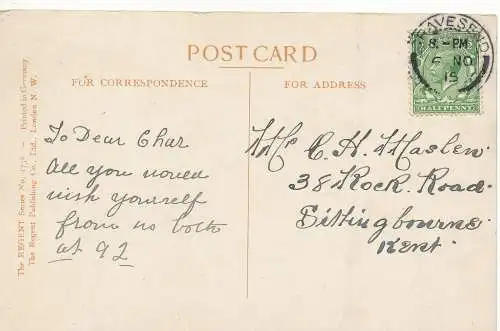 POST CARD
FOR CORRESPONDENCE
FOR ADDRESS
The REGENT Series No. — Printed in Germany.
The Regent Publishing Co., Ltd., London N. W.
GRAVESEND
8. - PM
5 NO
15
HALFPENNY
To Dear Char
All you
wish yourself
from us both
at 92
Mr C. H. Haslen
38 Rock. Road.
Sittingbourne
Kent.